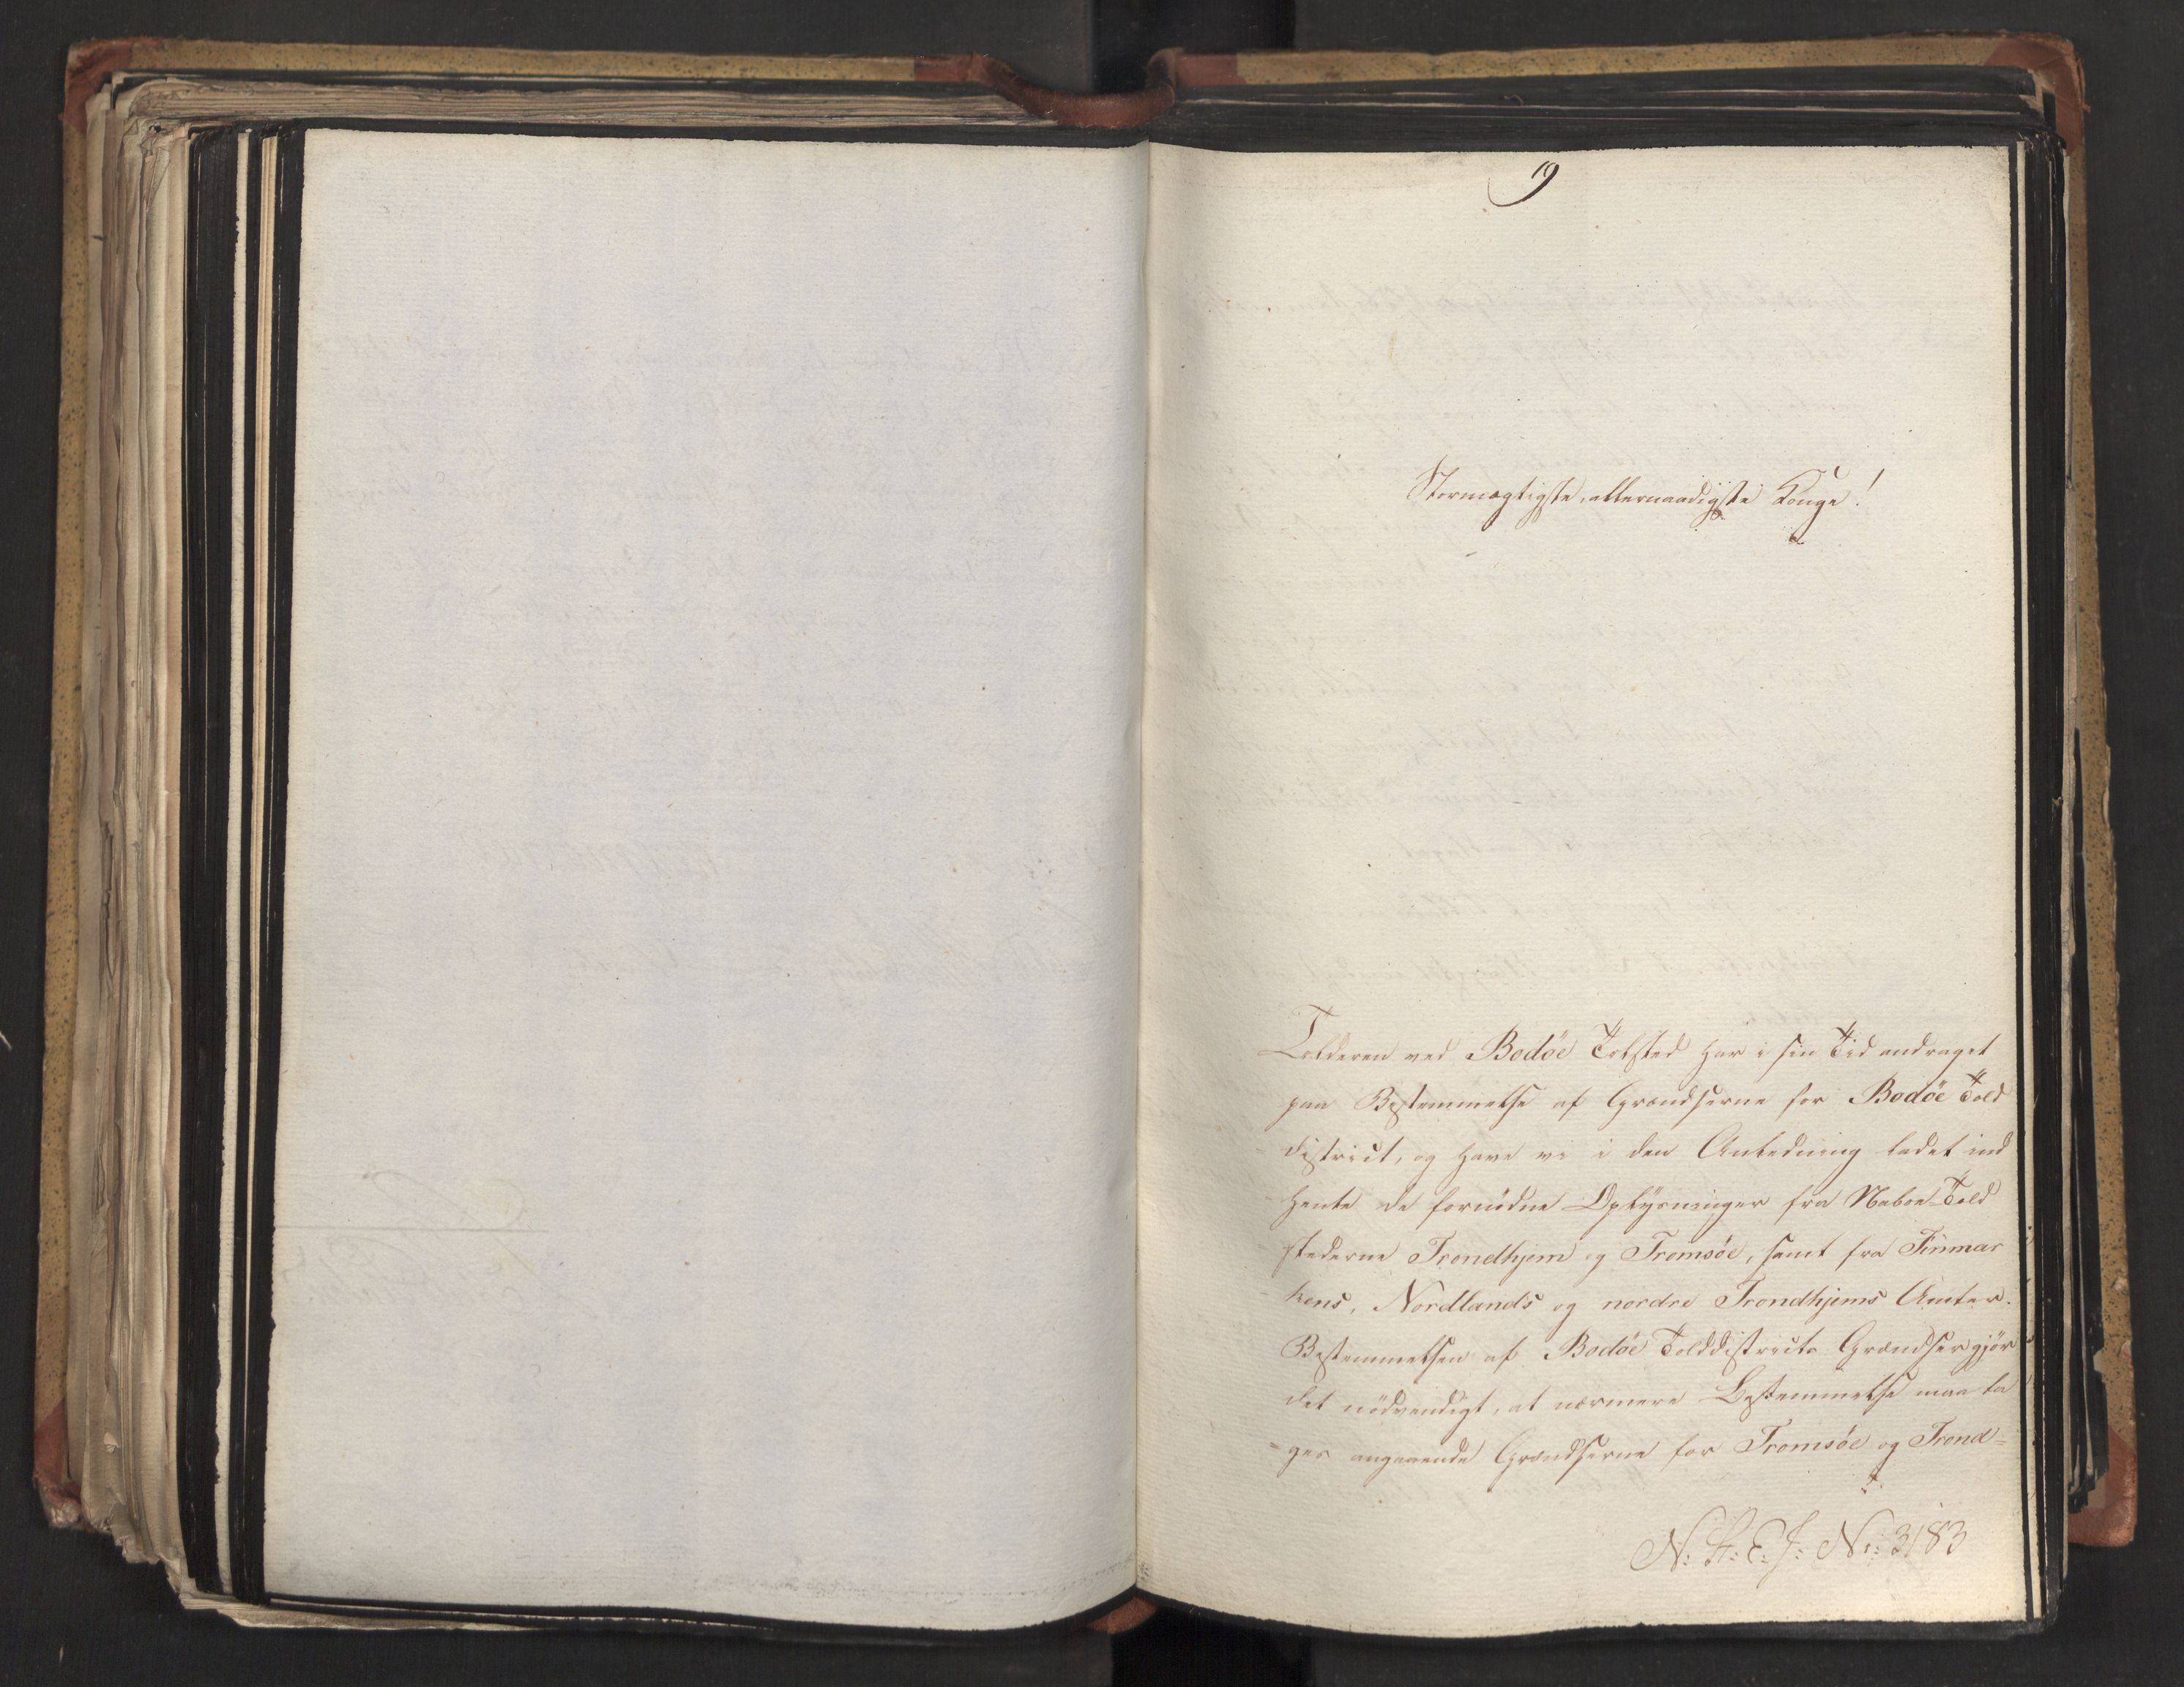 19
Stormægtigste, allernaadigste Konge!
Tolderen ved Bodöe Tolsted har i sin Tid andraget
paa Bestemmelse af Grændserne for Bodöe Told
district, og have vi i den Anledning ladet ind
hente de fornödne Oplysninger fra Naboe-Told
stederne Trondhjem og Tromsöe, samt fra Finmar
kens, Nordlands og nordre Trondhjems Amter.
Bestemmelsen af Bodöe Tolddistricts Grændser gjör
det nödvendigt, at nærmere Bestemmelse maa ta
ges angaaende Grændserne for Tromsöe og Trond=
N: St: E: J: No: 3183